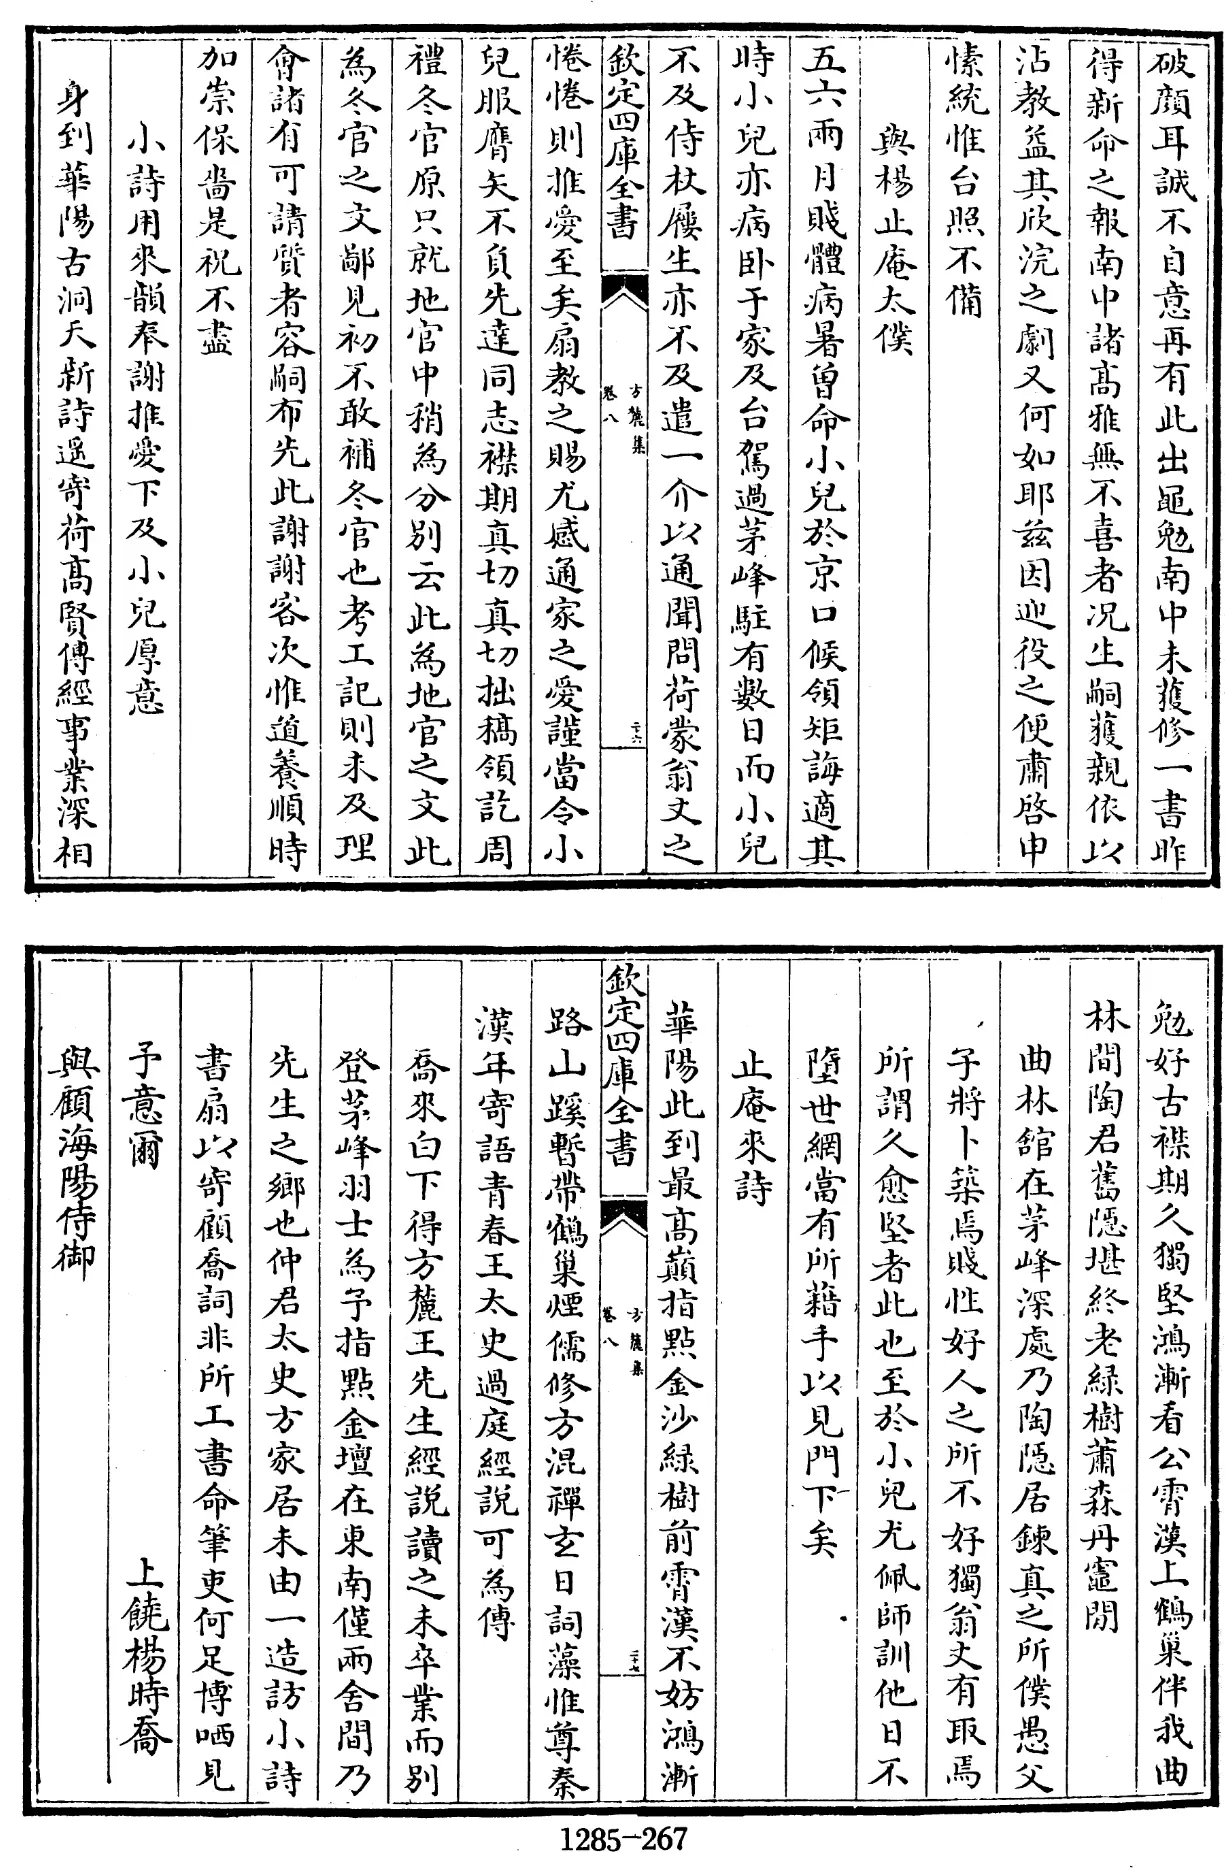 破顔耳誠不自意再有此出黽勉南中未獲修一書昨
得新命之報南中諸髙雅無不喜者况生嗣獲親依以
沾教益其欣浣之劇又何如耶兹因迎役之便肅啓申
愫統惟台照不備
與楊止庵太僕
五六兩月賤體病暑曾命小兒於京口候領矩誨適其
時小兒亦病卧于家及台駕過茅峰駐有數日而小兒
不及侍杖屨生亦不及遣一介以通聞問荷蒙翁丈之
欽定四庫全書
方麓集
卷八
二十六
惓惓則推愛至矣扇教之賜尤感通家之愛謹當令小
兒服膺矢不負先達同志襟期真切真切拙稿領訖周
禮冬官原只就地官中稍為分别云此為地官之文此
為冬官之文鄙見初不敢補冬官也考工記則未及理
會諸有可請質者容嗣布先此謝謝客次惟道養順時
加崇保嗇是祝不盡
小詩用來韻奉謝推愛下及小兒厚意
身到華陽古洞天新詩遥寄荷髙賢傳經事業深相
勉好古襟期久獨堅鴻漸看公霄漢上鶴巢伴我曲
林間陶君舊隱堪終老緑樹蕭森丹竈閒
曲林舘在茅峰深處乃陶隱居鍊真之所僕愚父
子將卜築焉賤性好人之所不好獨翁丈有取焉
所謂久愈堅者此也至於小兒尤佩師訓他日不
墮世網當有所藉手以見門下矣
止庵來詩
華陽此到最髙巔指點金沙緑樹前霄漢不妨鴻漸
欽定四庫全書
方麓集
卷八
二十七
路山蹊暫帶鶴巢煙儒修方混禪玄日詞藻惟尊秦
漢年寄語青春王太史過庭經説可為傳
喬來白下得方麓王先生經説讀之未卒業而别
登茅峰羽士為予指點金壇在東南僅兩舍間乃
先生之鄉也仲君太史方家居未由一造訪小詩
書扇以寄顧喬詞非所工書命筆吏何足博哂見
予意爾
上饒楊時喬
與顧海陽侍御
1285-267